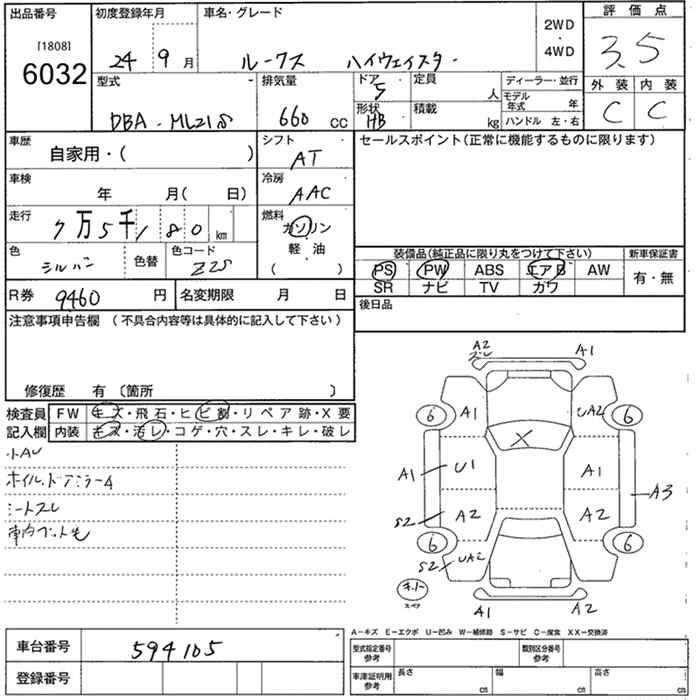 出品番号
[1808]
6032
初度登録年月
24 9 月
車名・グレード
ルークス ハイウェイスター
2WD
・
4WD
評価点
3.5
型式
DBA - ML21S
排気量
660 cc
ドア
5
形状
HB
定員
人
積載
kg
ディーラー・並行
モデル年式 年
ハンドル 左・右
外装 内装
C C
車歴
自家用・( )
シフト
AT
車検
年 月( 日)
冷房
AAC
走行
7万5千180 km
燃料
ガソリン
軽・油
( )
色
シルバー
色替
色コード
Z2S
R券 9460 円
名変期限 月 日
セールスポイント(正常に機能するものに限ります)
装備品(純正品に限り丸をつけて下さい)
新車保証書
PS PW ABS エアB AW
SR ナビ TV カワ
有・無
後日品
注意事項申告欄 (不具合内容等は具体的に記入して下さい)
修復歴 有 〔箇所 〕
検査員
記入欄
FW キズ・飛石・ヒビ割・リペア跡・X要
内装 キズ・汚レ・コゲ・穴・スレ・キレ・破レ
シートスレ
A2
A1
6 A1 UA2 6
X
A1 U1 A1 A3
S2 A2 A2
6 6
S2 UA2
キー
スペア
A1 A2
A－キズ E－エクボ U－凹み W－補修跡 S－サビ C－腐食 XX－交換済
車台番号 594105
登録番号
型式指定番号
参考
類別区分番号
参考
車庫証明用
参考
長さ cm 幅 cm 高さ cm